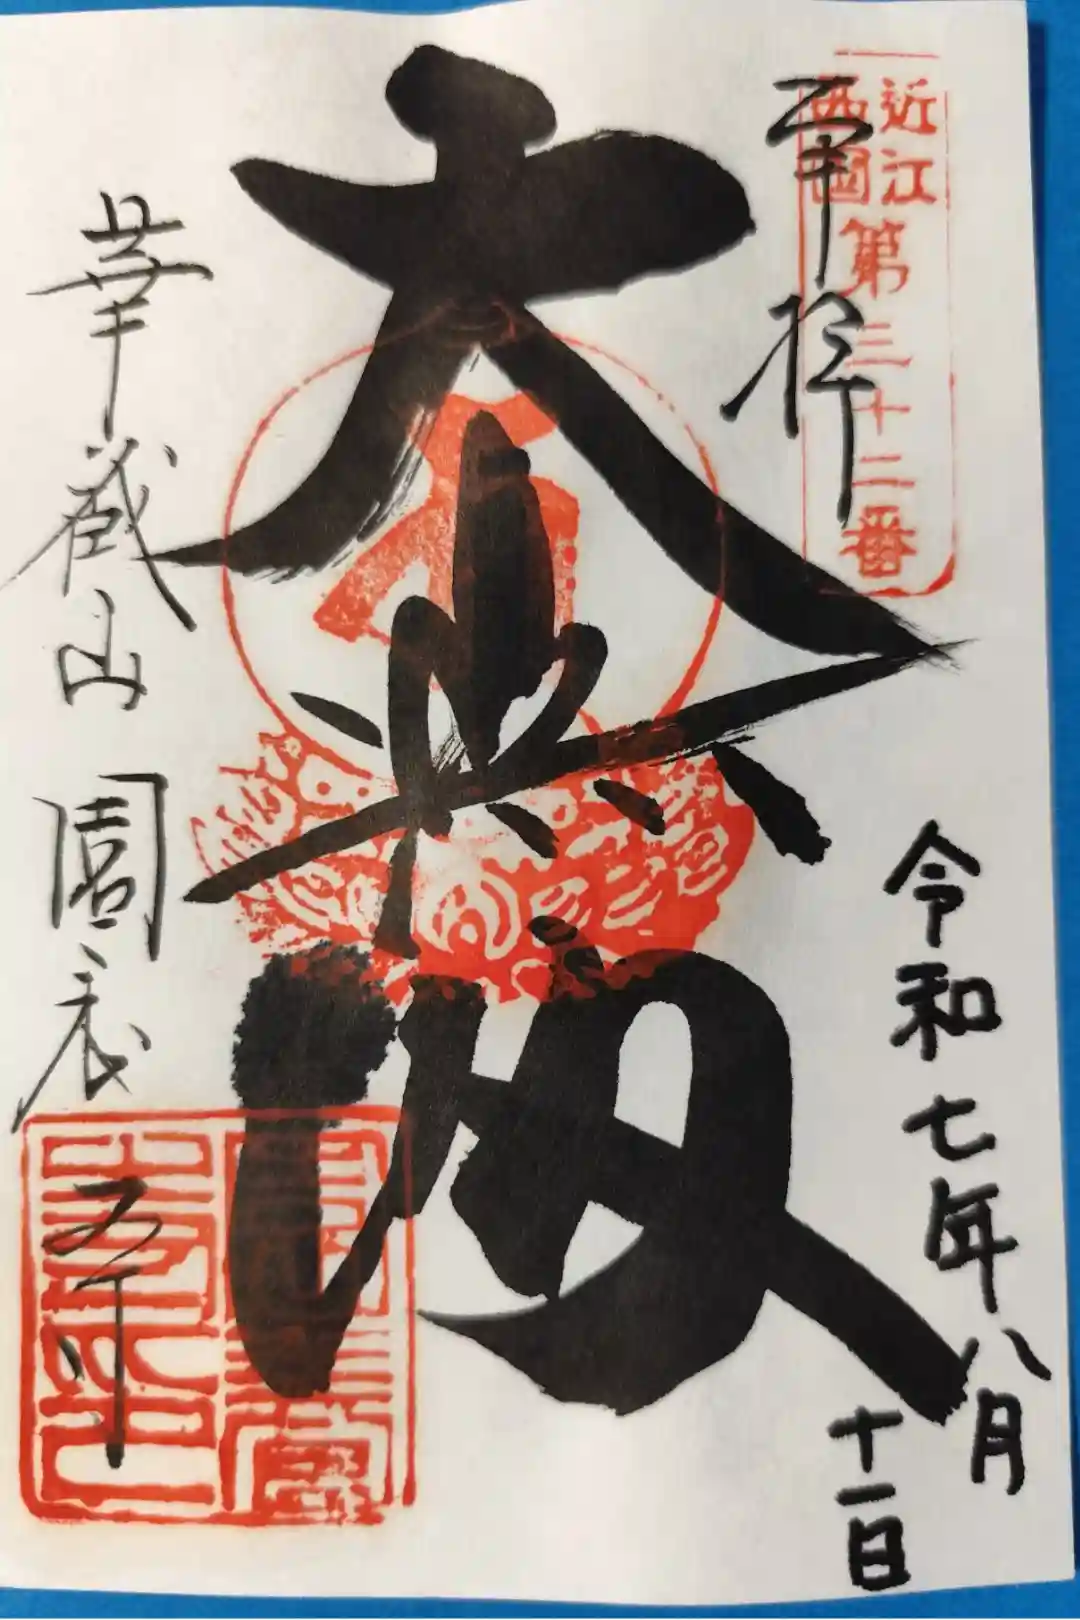 近江
西国
第三十二番
奉拝
令和七年八月
十一日
大悲殿
華蔵山 園養寺